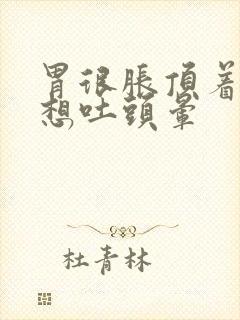 胃很脹頂着
想吐頭暈
杜青林